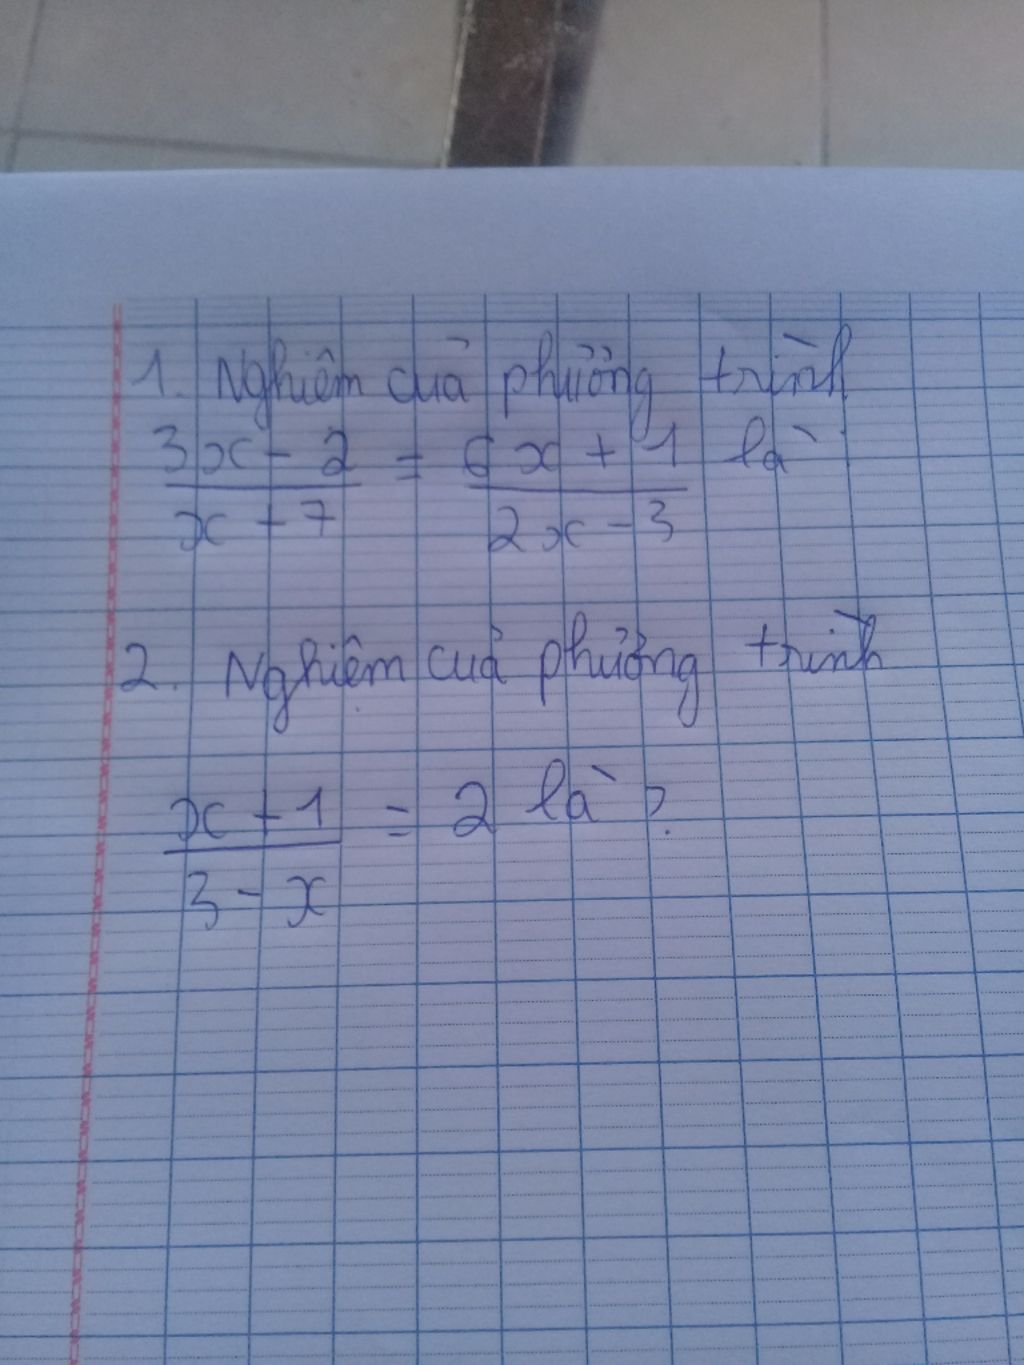 1. Nghiệm của phưởng trình
3x - 2 / x + 7 = 6x + 1 / 2x - 3 là
2. Nghiệm của phưởng trình
x + 1 / 3 - x = 2 là ?